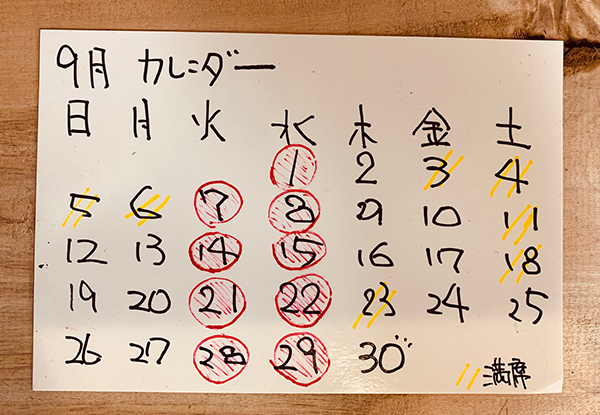 9月 カレンダー
日 月 火 水 木 金 土
1 2 3 4
5 6 7 8 9 10 11
12 13 14 15 16 17 18
19 20 21 22 23 24 25
26 27 28 29 30
満席